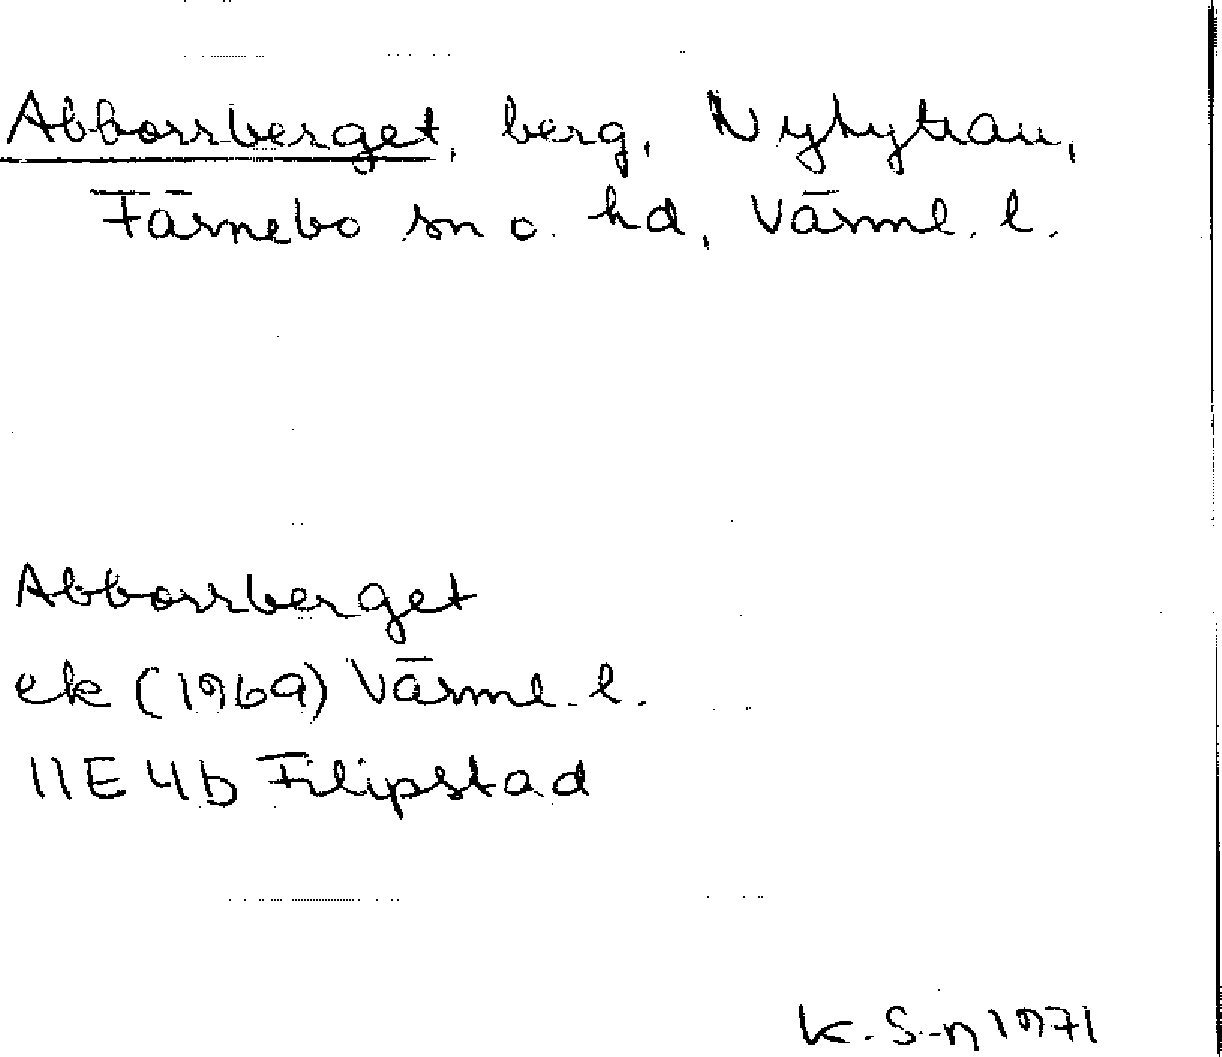 Abborrberget, berg, Nyhyttan,
Färnebo sn o. hd, Värml. l.
Abborrberget
ek (1969) Värml. l.
11E 4b Filipstad
K. S-n 1971